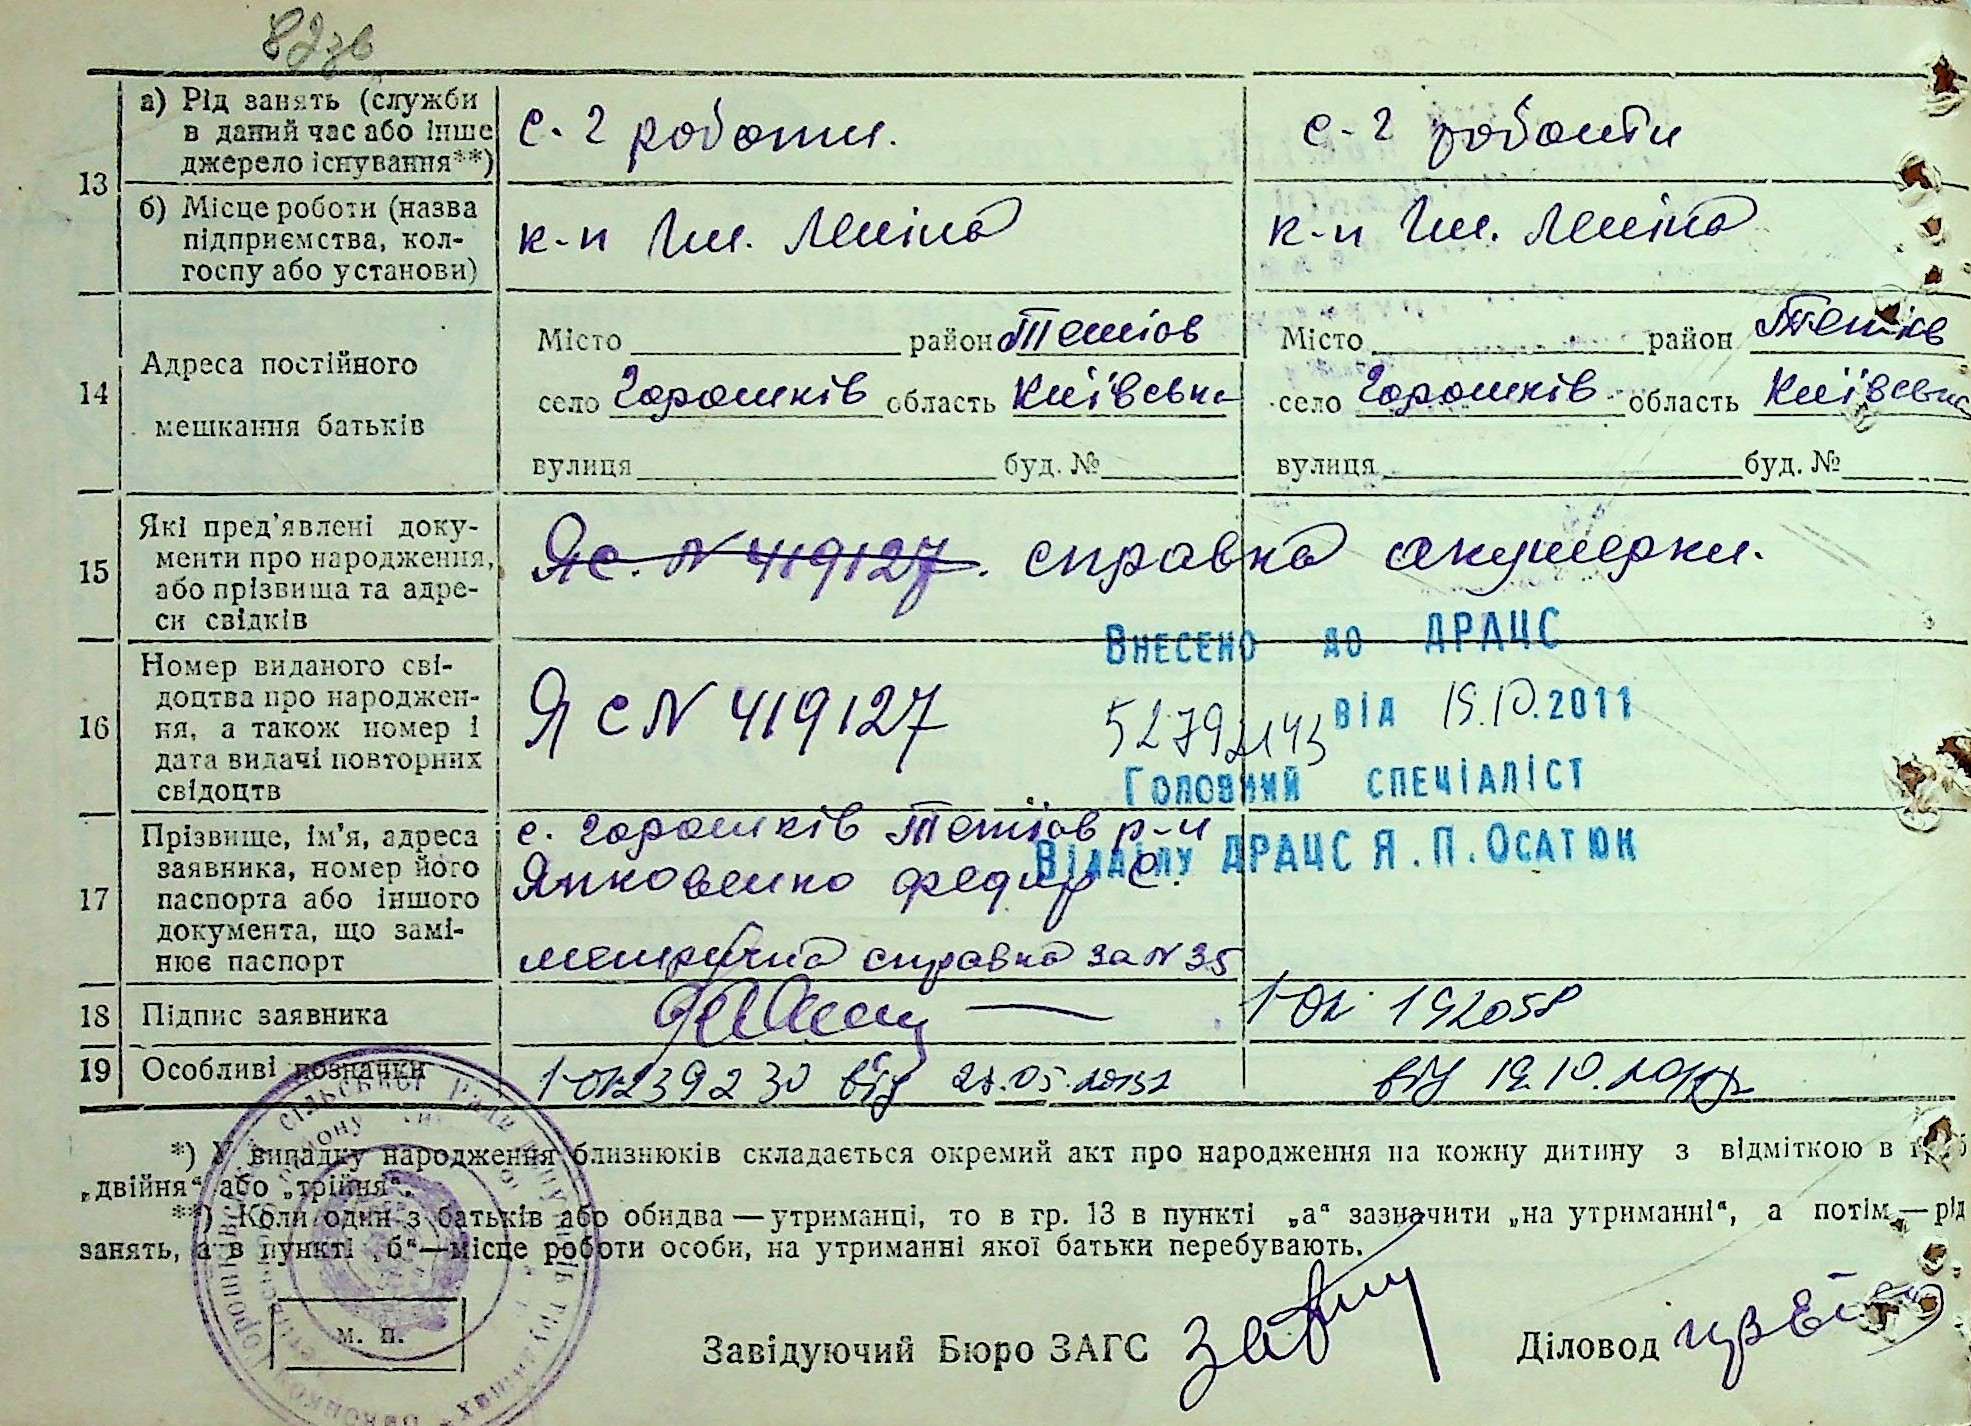 82зв
13
а) Рід занять (служби
в даний час або інше
джерело існування**)
с-г роботи.
с-г роботи
б) Місце роботи (назва
підприємства, кол-
госпу або установи)
к-п Ім. Леніна
к-п Ім. Леніна
14
Адреса постійного
мешкання батьків
Місто район Тетіїв
село Горошків область Київська
вулиця буд. №
Місто район Тетіїв
село Горошків область Київська
вулиця буд. №
15
Які пред'явлені доку-
менти про народження,
або прізвища та адре-
си свідків
ЯС. N 419127. справка акушерки.
16
Номер виданого сві-
доцтва про народжен-
ня, а також номер і
дата видачі повторних
свідоцтв
ЯС N 419127
Внесено до ДРАЦС
від 19.10.2011
Головний спеціаліст
Відділу ДРАЦС Я.П.Осатюк
17
Прізвище, ім'я, адреса
заявника, номер його
паспорта або іншого
документа, що замі-
нює паспорт
с. Горошків Тетіїв р-н
Яковенко Федир С.
метрична справка за N 35
18
Підпис заявника
1-ОК 192058
19
Особливі позначки
від 19.10.
*) У випадку народження близнюків складається окремий акт про народження на кожну дитину з відміткою в
„двійня“ або „трійня“.
**) Коли один з батьків або обидва — утриманці, то в гр. 13 в пункті „а“ зазначити „на утриманні“, а потім — рід
занять, а в пункті „б“ — місце роботи особи, на утриманні якої батьки перебувають.
м. п.
Завідуючий Бюро ЗАГС
Діловод